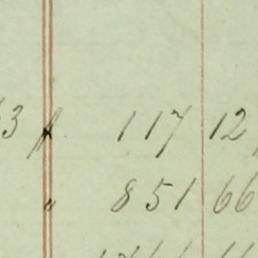 3 117 12
" 851 66